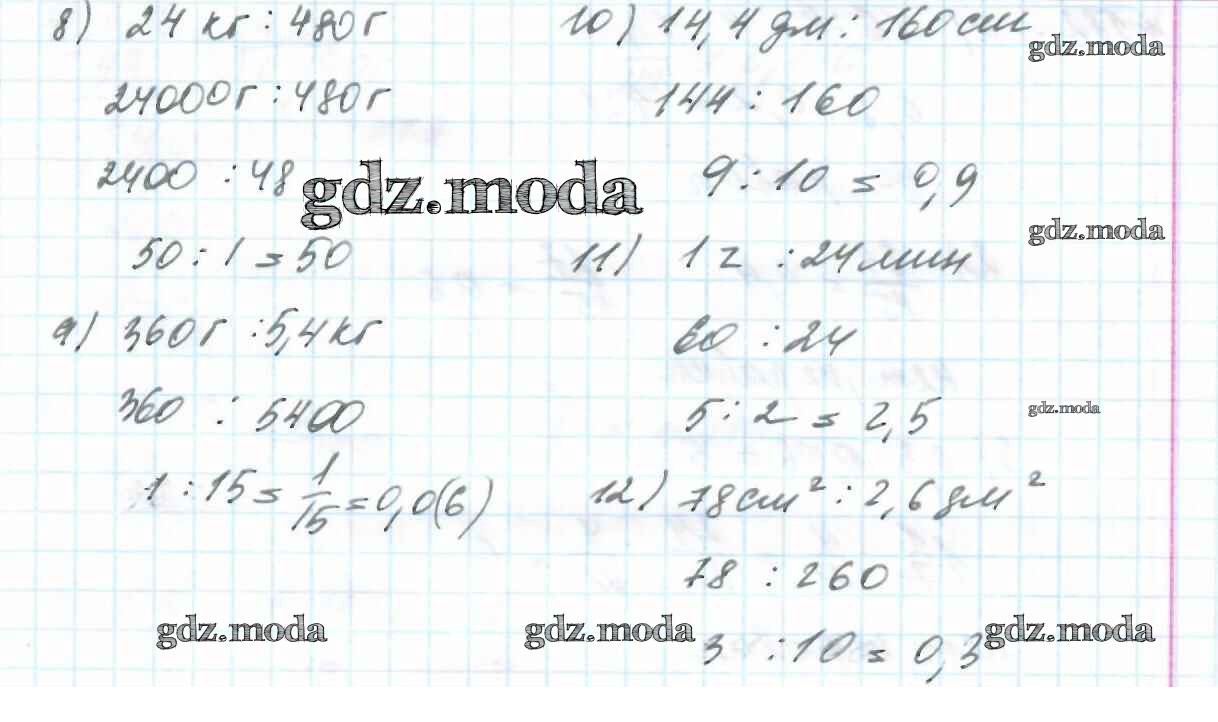 8) 24 кг : 480 г
24000 г : 480 г
2400 : 48
50 : 1 = 50
9) 360 г : 5,4 кг
360 : 5400
1 : 15 = 1/15 = 0,0(6)
10) 14,4 дм : 160 см
144 : 160
9 : 10 = 0,9
11) 1 г : 24 мин
60 : 24
5 : 2 = 2,5
12) 78 см² : 2,6 дм²
78 : 260
3 : 10 = 0,3
gdz.moda
gdz.moda
gdz.moda
gdz.moda
gdz.moda
gdz.moda
gdz.moda